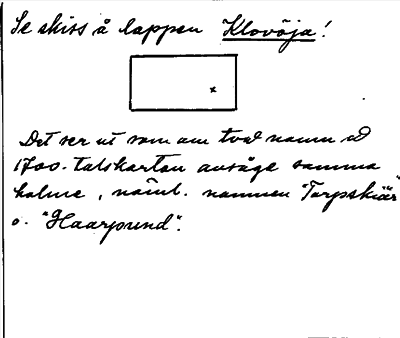 Se skiss å lappen Klovöja!
x
Det ser ut som om två namn på
1700-talskartan avsåge samma
holme, näml. namnen "Torpskiär"
o. "Haarpund".